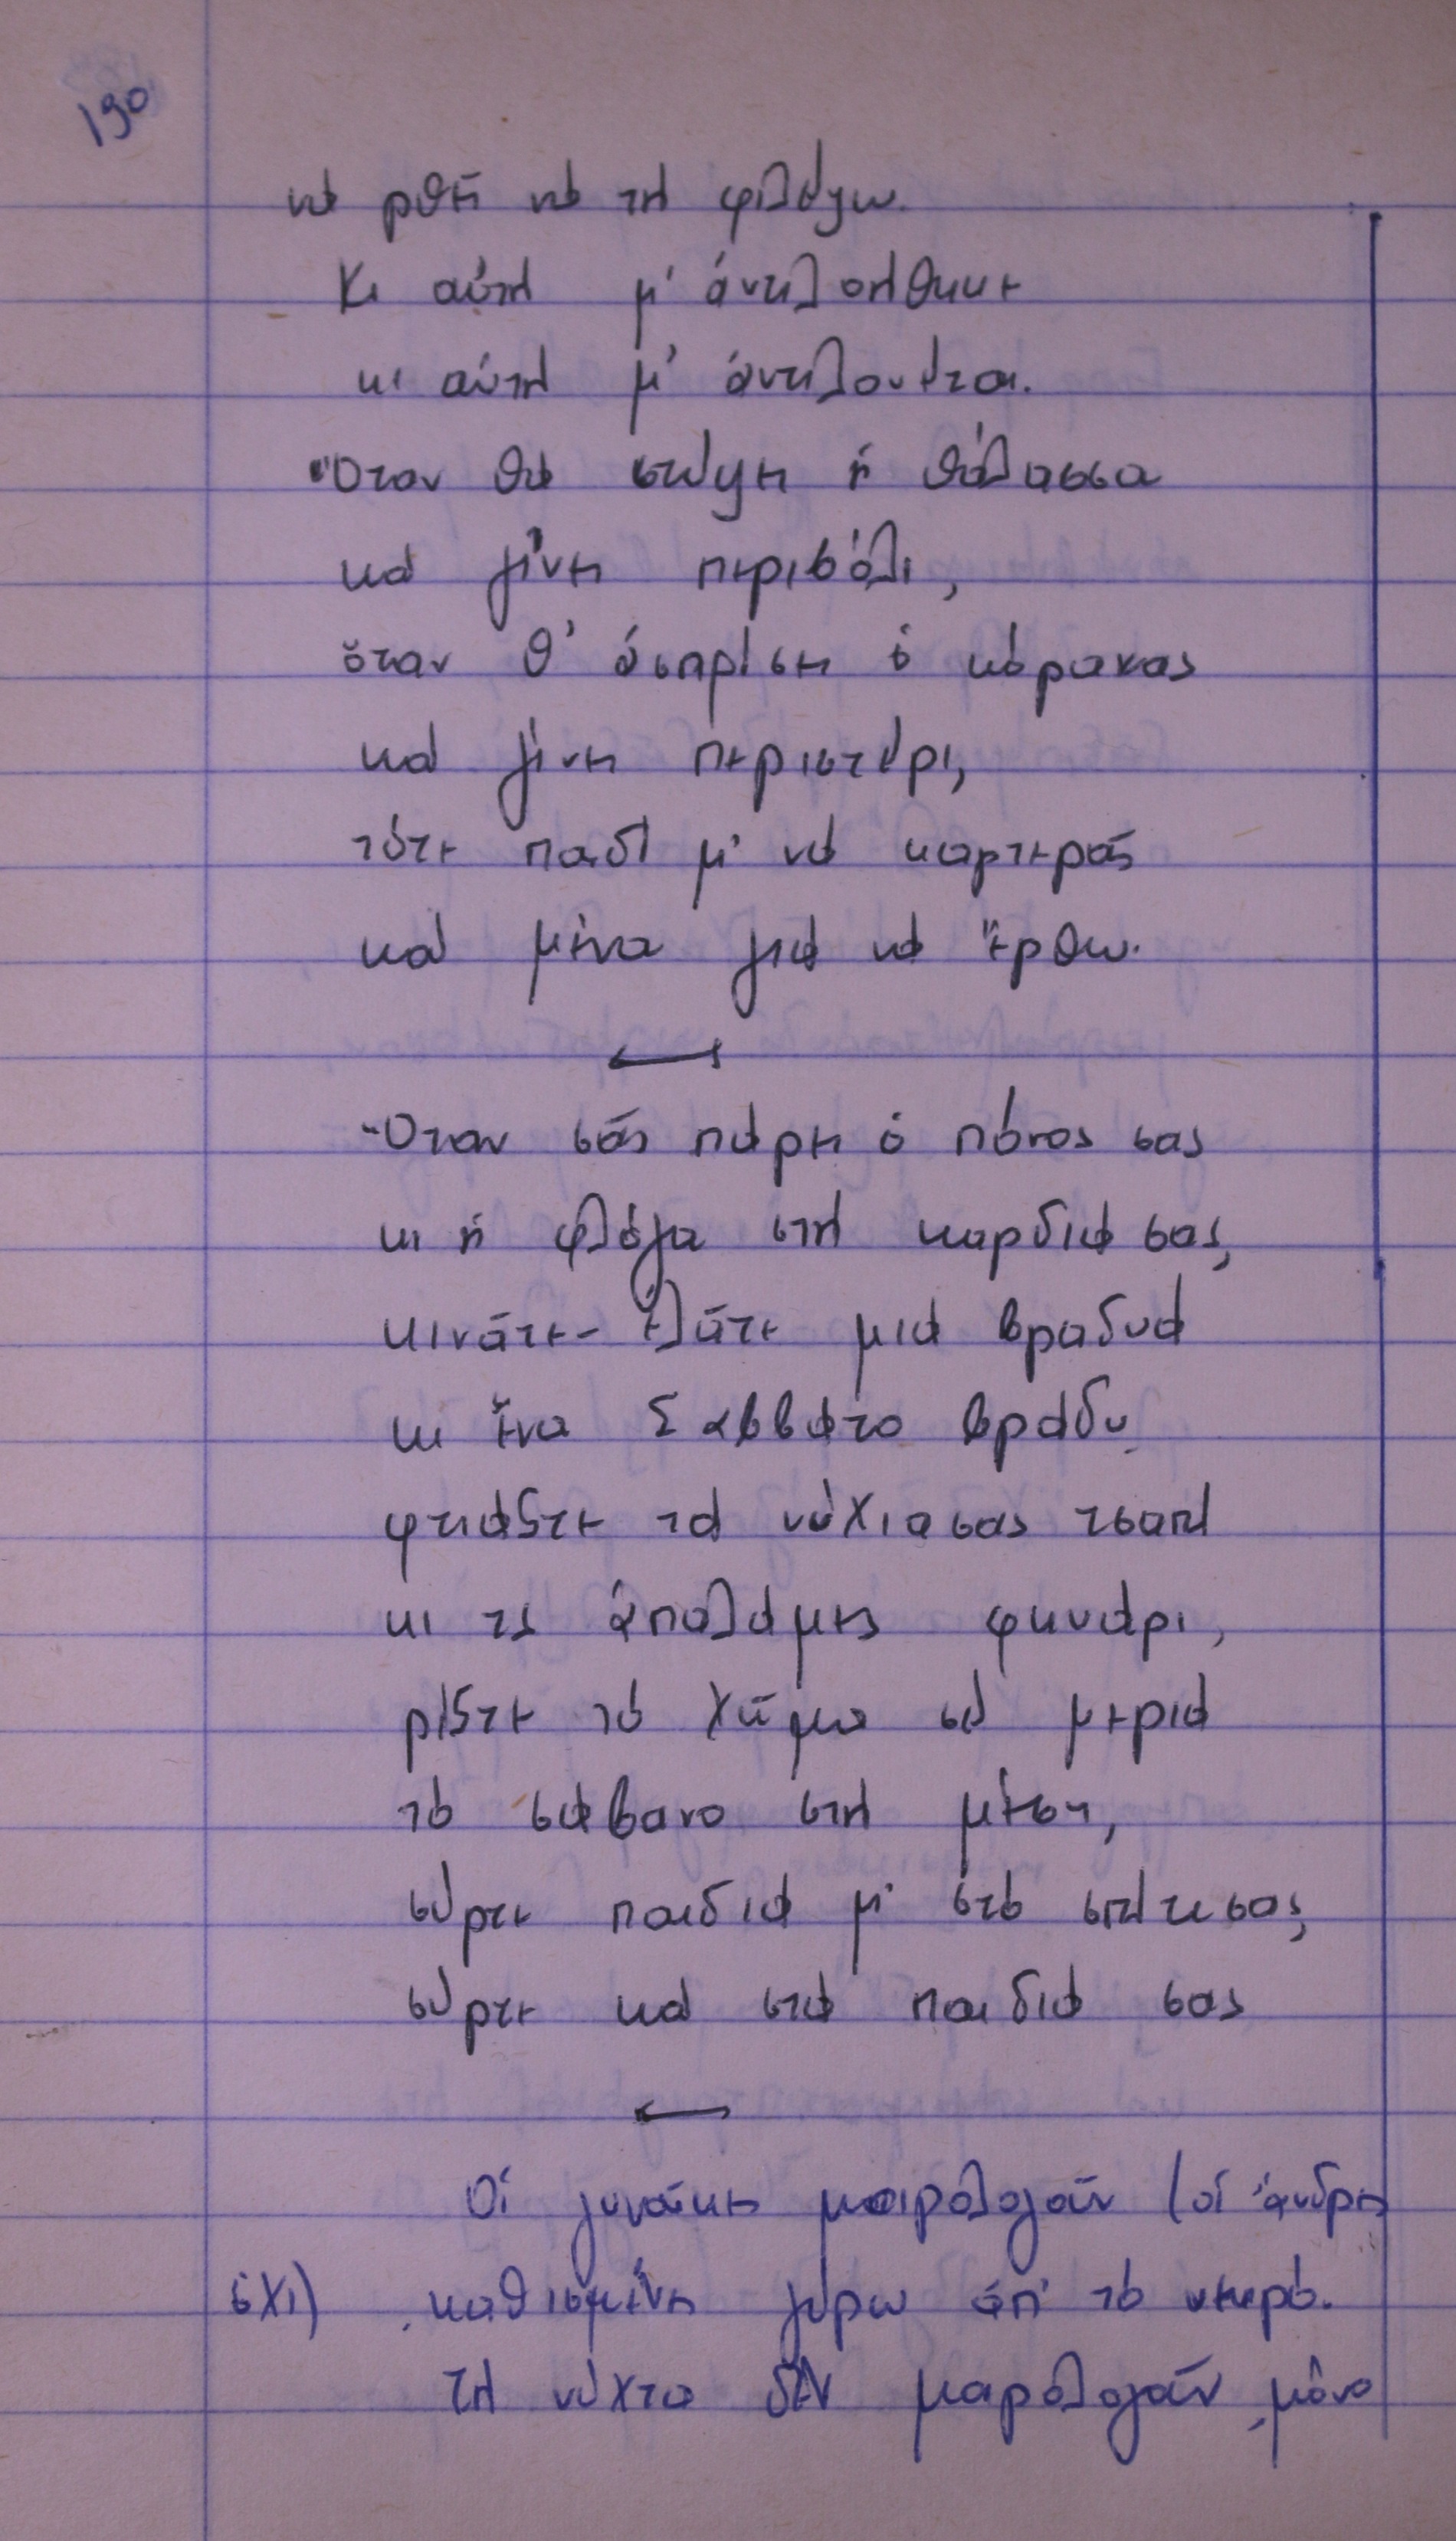 190
νὰ ρθῆ νὰ τὴ φιλέψω.
Κι αὐτὴ μ' ἀντιλοήθηκε
κι αὐτὴ μ' ἀντιλουέται.
Ὅταν θὰ στύψη ἡ θάλασσα
καὶ γίνη περιβόλι,
ὅταν θ' ἀσπρίση ὁ κόρακας
καὶ γίνη περιστέρι,
τότε παιδί μ' νὰ καρτερᾶς
καὶ μένα γιὰ νὰ ἔρθω.
Ὅταν σᾶς πάρη ὁ πόνος σας
κι ἡ φλόγα στὴ καρδιά σας,
κινᾶτε - ἐλᾶτε μιὰ βραδυὰ
κι ἕνα Σαββάτο βράδυ
φτιάξτε τὰ νύχια σας τσαπὶ
κι τς ἀπαλάμες φκυάρι,
ρίξτε τὸ χῶμα σὲ μεριὰ
τὸ σάβανο στὴ μέση,
σύρτε παιδιά μ' στὸ σπίτι σας,
σύρτε καὶ στὰ παιδιά σας
Οἱ γυναῖκες μοιρολογοῦν (οἱ ἄνδρες
ὄχι) καθισμένες γύρω ἀπ' τὸ νεκρό.
Τὴ νύχτα δὲν μοιρολογοῦν, μόνο